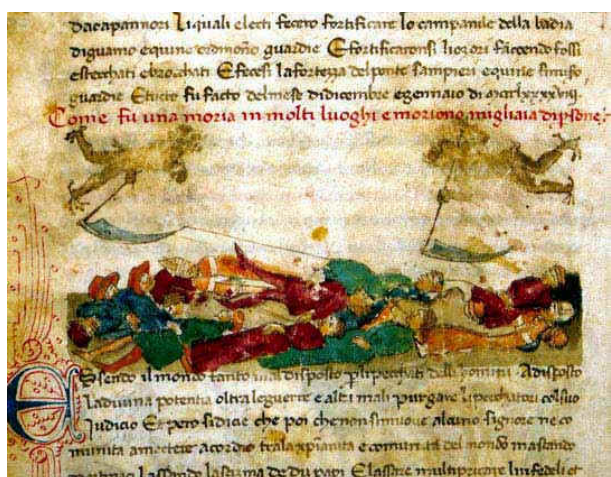 dacapannori Liquali electi fecero fortificare lo campanile della badia
diguamo equine ordinono guardie E fortificaronsi liorori faccendo fossi
estecchati ebrocchati E fecesi la fortezza del ponte sampieri equine simiso
guardie Etucto fu facto delmese didicembre egennaio di
Come fu una moria in molti luoghi e moriono migliaia dipsone
Essendo il mondo tanto mal disposto p lipecchati delli homini A disposto
La divina potentia oltra leguerre e altri mali purgare lipecchatori col suo
Judicio Et pero sidice che poi che non simuove alcuno signore ne co
munita amectere acordio tralaxpianita e comunita del mondo mastando
Lassando lascisma de du papi E lassare multipricare linfedeli et